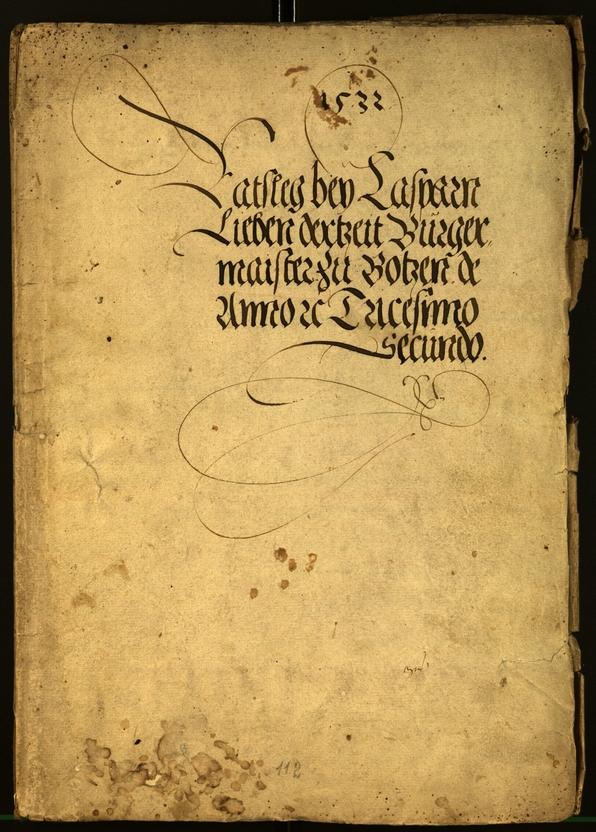 1532
Ratsleg bey Casparn
Lieben dertzeit Burger
maister zu Botzen de
Anno ⁊c Tricesimo
secundo.
112